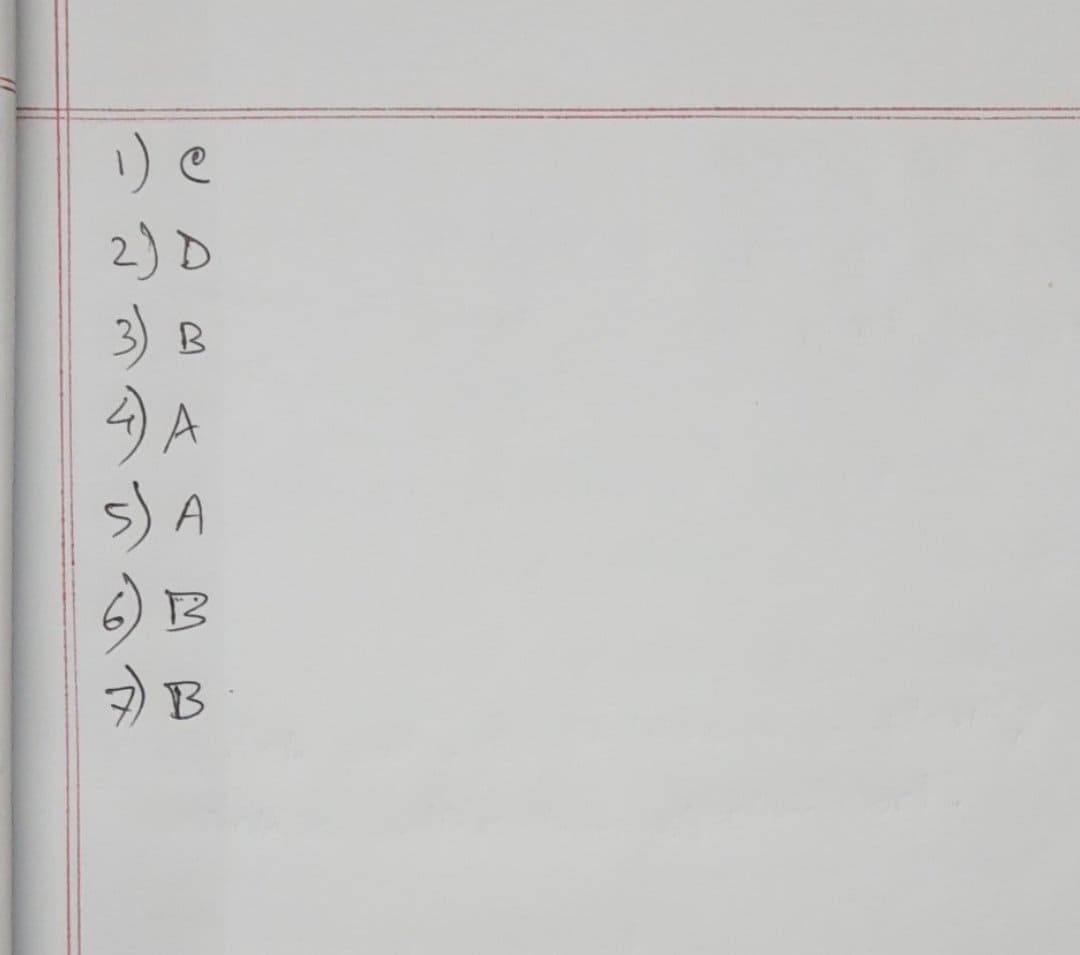 1) C
2) D
3) B
4) A
5) A
6) B
7) B